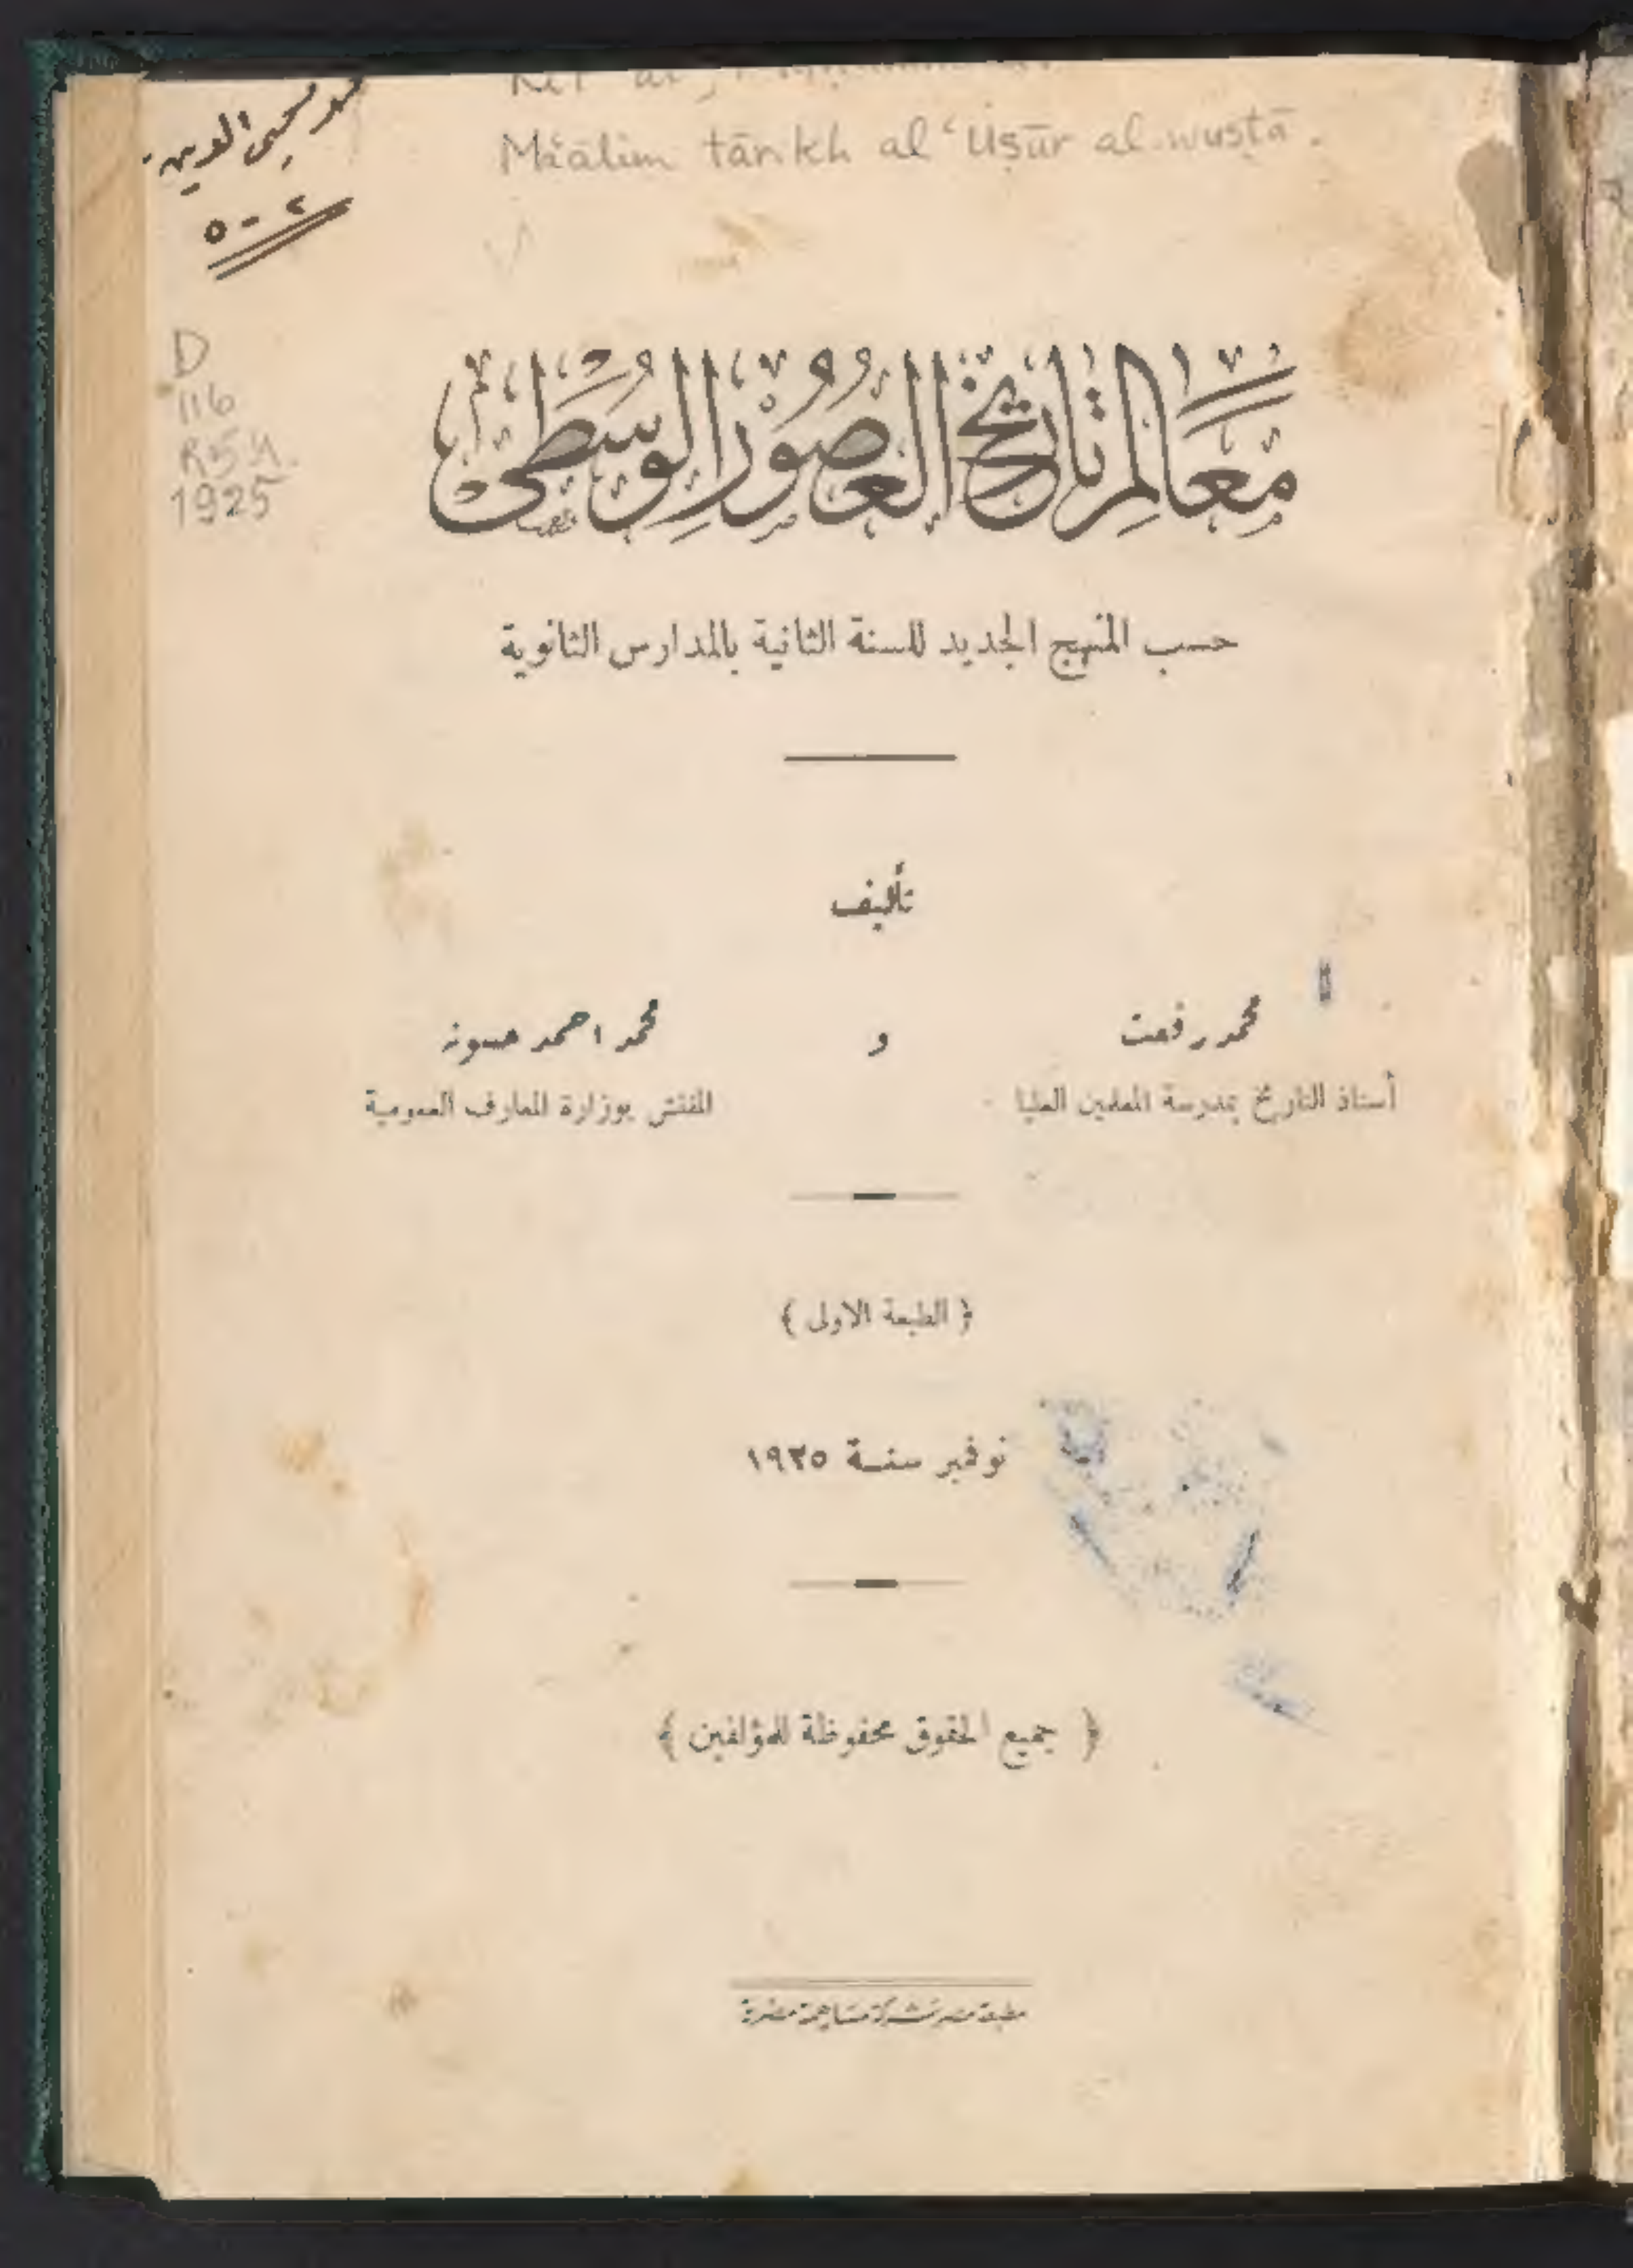 Ma'ālim tārīkh al-'Uṣūr al-wusṭā.
محيى الدين
D
116
1925
معالم تاريخ العصور الوسطى
حسب المنهج الجديد للسنة الثانية بالمدارس الثانوية
تأليف
محمد رفعت و محمد احمد حسونه
أستاذ التاريخ بمدرسة المعلمين العليا المفتش بوزارة المعارف العمومية
﴿ الطبعة الاولى ﴾
نوفمبر سنة ١٩٢٥
﴿ جميع الحقوق محفوظة للمؤلفين ﴾
مطبعة مصر شركة مساهمة مصرية